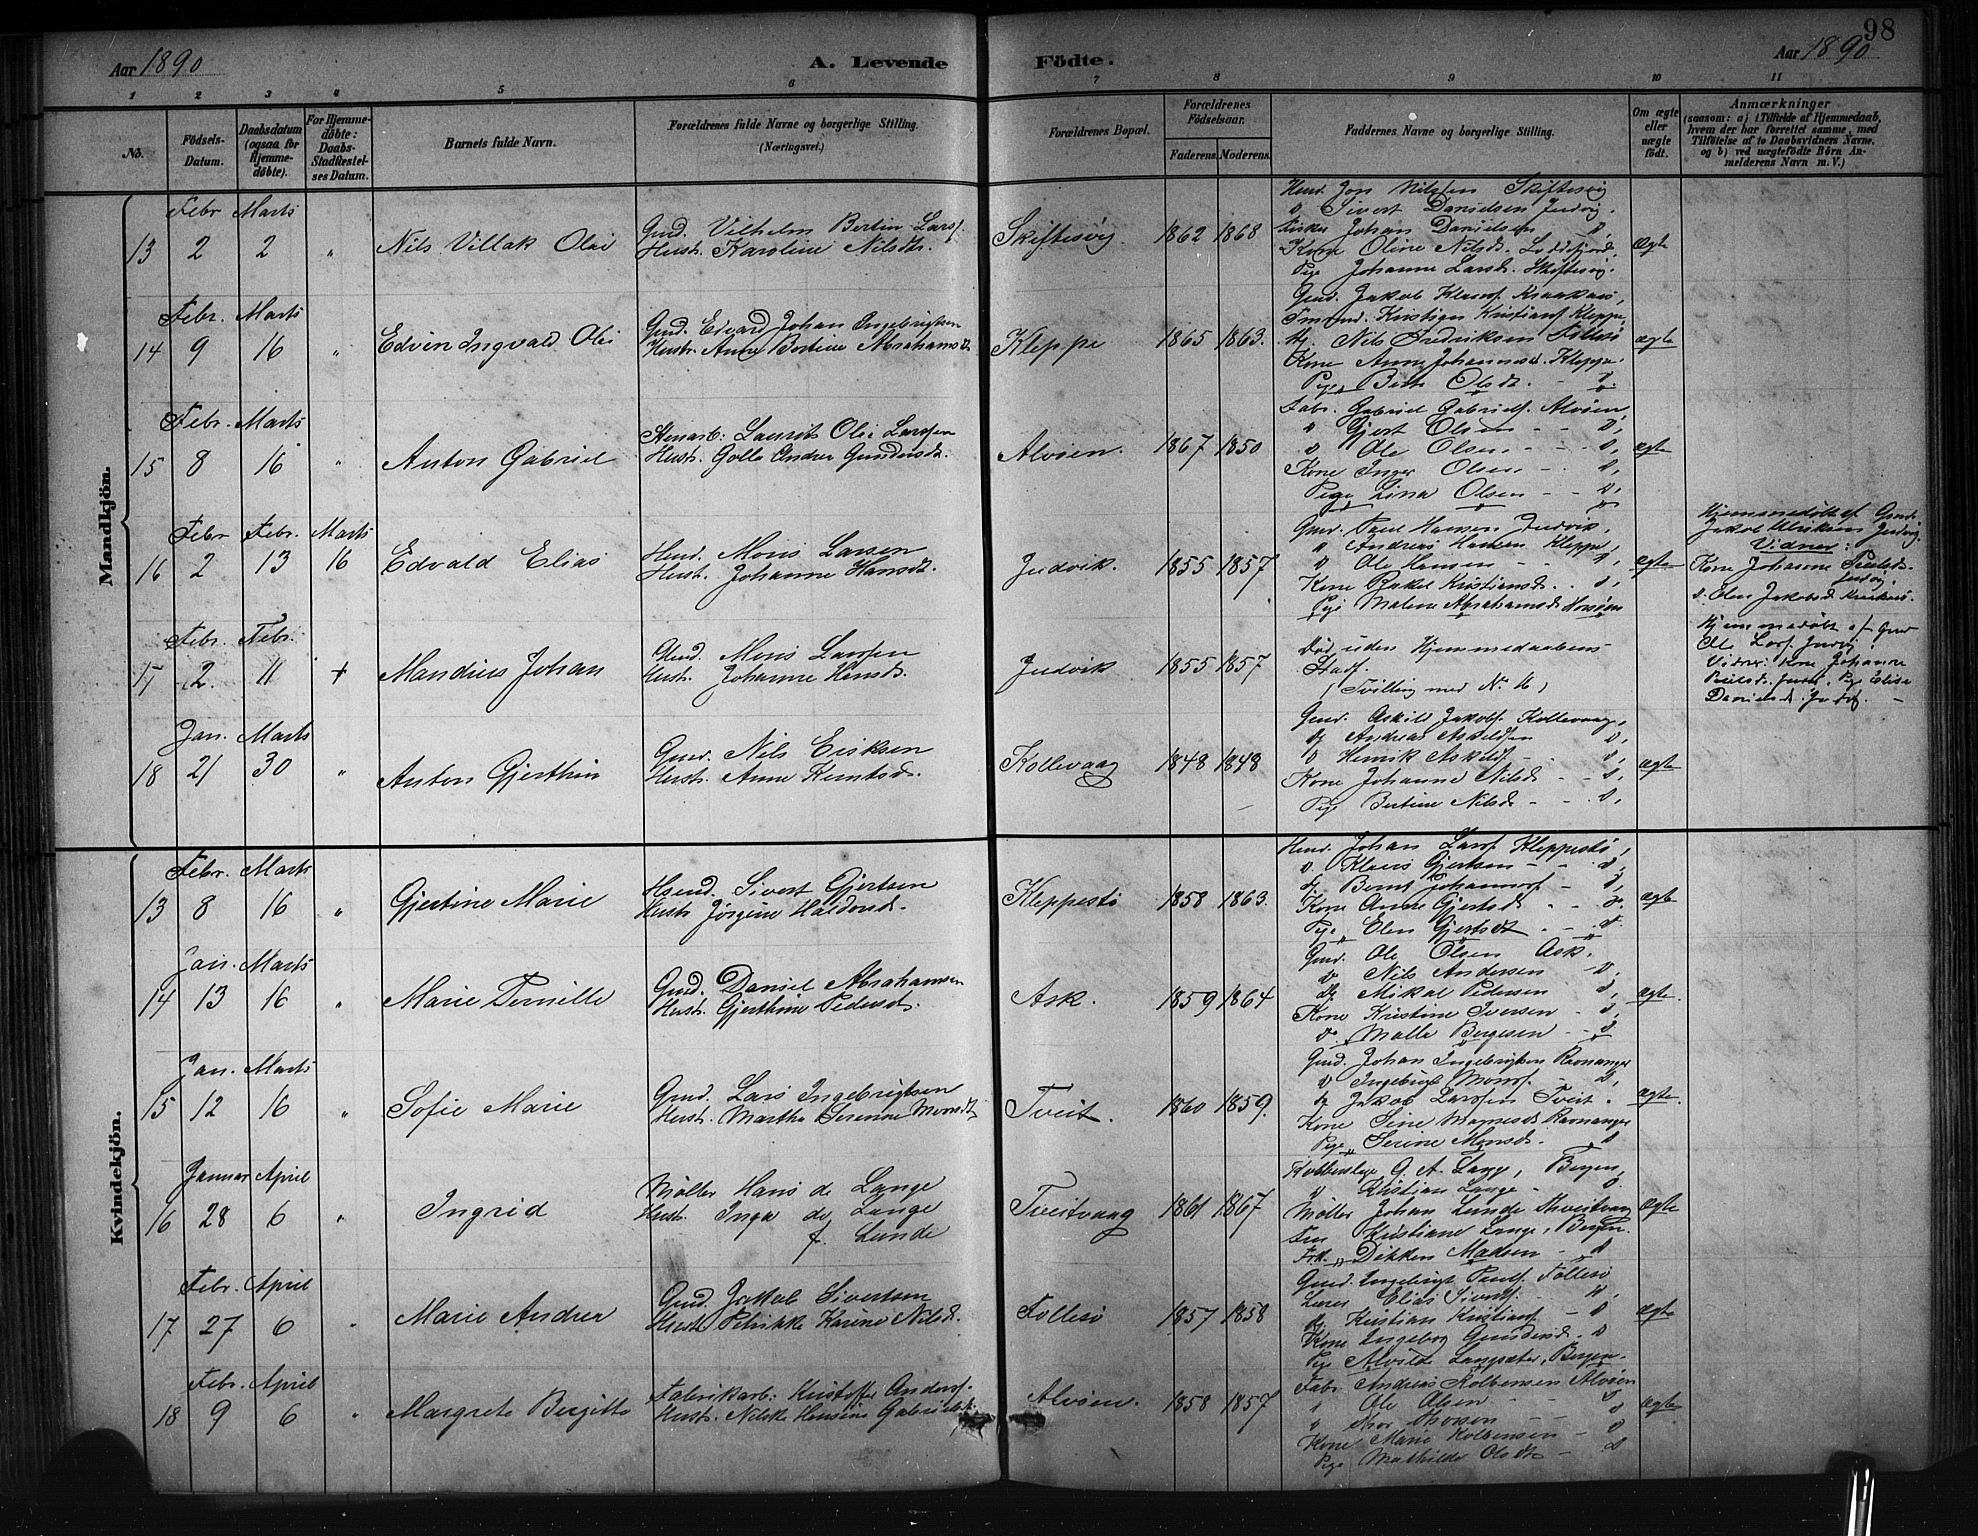 98
Aar 1890 A. Levende Födte. Aar 1890
1 2 3 4 5 6 7 8 9 10 11
No. Födsels-Datum. Daabsdatum (ogsaa for Hjemmedöbte). For Hjemmedöbte: Daabs-Stadfæstelses Datum. Barnets fulde Navn. Forældrenes fulde Navne og borgerlige Stilling. (Næringsvei.) Forældrenes Bopæl. Forældrenes Födselsaar. Faderens. Moderens. Faddernes Navne og borgerlige Stilling. Om ægte eller uægte födt. Anmærkninger (saasom: a) i Tilfælde af Hjemmedaab, hvem der har forrettet samme, med Tilföielse af to Daabsvidners Navne, og b) ved uægtefödte Börn Anmelderens Navn m. V.)
Mandkjön.
Febr Marts
13 2 2 " Nils Villak Olai
Gmd. Vilhelm Bertin Larsf.
Hust. Karoline Nilsdtr.
Skiftesvig 1862 1868
Jon Nilsen Skiftesvig
" Sivert Danielsen Judvig.
Johan Danielsen
Kone Oline Nilsd. Loddefjord
Pige Johanne Larsd. Skiftesvig.
ægte
Febr. Marts
14 9 16 " Edvin Ingvald Olai
Gmd. Edvard Johan Ingebrigtsen
Hust. Anna Bertine Abrahamsdt
Kleppe 1865 1863.
Gmd. Jakob Klausf. Kraakaas,
Kristian Kristiansf. Kleppe,
Nils Fredriksen Follesø
Kone Anna Johannesd. Kleppe.
Pige Berte Olsdt. - "
ægte
Febr. Marts
15 8 16 " Anton Gabriel
Stenarb: Laurits Olai Larsen
Hust. Golla Andrea Gundersdt.
Alvøen. 1867 1850
Fabr. Gabriel Gabrielsf. Alvøen,
" Gjert Olsen - -
" Ole Olsen - -
Kone Inger Olsen -
Pige Lina Olsen - -
ægte
Febr Febr. Marts
16 2 13 16 Edvald Elias
Hmd. Mons Larsen
Hust. Johanne Hansdt.
Judvik. 1855 1857
Gmd. Paul Hansen Judvik,
" Andreas Hansen Kleppe,
" Ole Hansen -
Kone Rakel Kristiansd. -
Pige Malene Abrahamsd.
ægte
Hjemmedøbt af Gmd.
Jakob Judvig.
Vidner:
Kone Johanne
Judvig.
Elen Jakobsd.
Febr. Febr.
17 2. 11 + Mandius Johan
Gmd. Mons Larsen
Hust. Johanne Hansdt.
Judvik 1855 1857
Død uden Hjemmedaabens
Stadf.
(Tvilling med N. 16)
Hjemmedøbt af Gmd
Ole Larsf. Judvig.
Vidner: Kone Johanne
Pige Elise
Danielsd. Judvig. -
Jan. Marts
18 21 30 " Anton Gjerthin
Gmd. Nils Eriksen
Hust. Anna Knutsdt.
Kollevaag 1848 1848
Gmd. Askild Jakobsf. Kollevaag,
Andreas Askildsen
" Henrik Askildsf. -
Kone Johanne Nilsd - -
Pige Bertine Nilsdt - -
ægte
Kvindekjön.
Febr. Marts
13 8 16 " Gjertine Marie
Hsmd. Sivert Gjertsen
Hust. Jørgine Haldorsd.
Kleppestø 1858 1863.
Hmd. Johan Larsf. Kleppestø,
" Klaus Gjertsen - -
Bernt Johannesf. -
Kone Anna Gjertsd - -
Pige Elen Gjertsdt. - -
ægte
Jan. Marts
14 13 16 " Marie Pernille
Gmd. Daniel Abrahamsen
Hust. Gjerthine Pedersdt.
Ask. 1859 1864
Gmd. Ole Olsen Ask.
" Nils Andersen
Mikal Pedersen
Kone Kristine Iversen -
" Malla Børgesen - -
ægte.
Jan. Marts
15 12 16 " Sofie Marie
Gmd. Lars Ingebrigtsen
Hust. Martha Serenne Monsdt
Tveit. 1860 1859.
Gmd. Johan Ingebrigtsen Ravnanger
" Ingebrigt Monsf.
Jakob Larsen Tveit.
Kone Sine Magnesdt Ravnanger
Pige Serine Monsdt.
ægte.
Januar April
16 28 6 " Ingrid
Møller Hans de Lange
Hust. Inga de Lange
f. Lunde
Tveitvaag 1861 1867
G. A. Lange, Bergen,
" Kristian Lange -
Møller Johan Lunde
Fru Kristiane Lange, Bergen.
Frk. Dikken Madsen - "
ægte
Febr. April
17 27 6 " Marie Andrea
Gmd. Jakob Sivertsen
Hust. Petrikke Karine Nilsdt.
Follesø 1857 1858
Gmd. Ingebrigt Paulsf. Follesø
Lærer Elias Sivertsf. -
Kristian Kristiansf. -
Kone Ingeborg Gundersd. -
Pige Alvilde Langsæter, Bergen.
ægte
Febr. April
18 9 6 " Margrete Birgitte
Fabrikarb. Kristoffer Andersf.
Hust. Nilske Hansine Gabrielsdt.
Alvøen. 1858 1857
Fabr. Andreas Kolbensen Alvøen
" Ole Olsen
" Thorsen -
Kone Marie Kolbensen -
Pige Mathilde Olsdt -
ægte